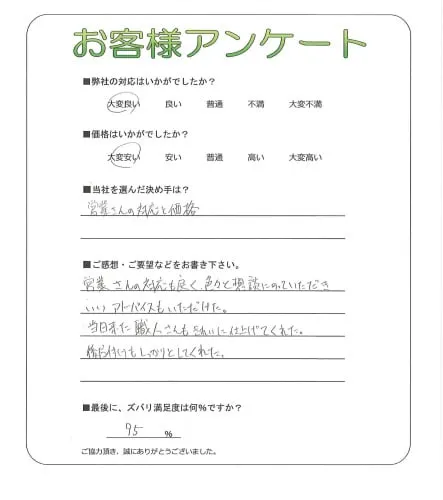 お客様アンケート
■弊社の対応はいかがでしたか？
大変良い 良い 普通 不満 大変不満
■価格はいかがでしたか？
大変安い 安い 普通 高い 大変高い
■当社を選んだ決め手は？
営業さんの対応と価格
■ご感想・ご要望などをお書き下さい。
営業さんの対応も良く、色々と相談にのっていただき
いいアドバイスもいただけた。
当日来た職人さんもきれいに仕上げてくれた。
後片付けもしっかりとしてくれた。
■最後に、ズバリ満足度は何％ですか？
95 %
ご協力頂き、誠にありがとうございました。